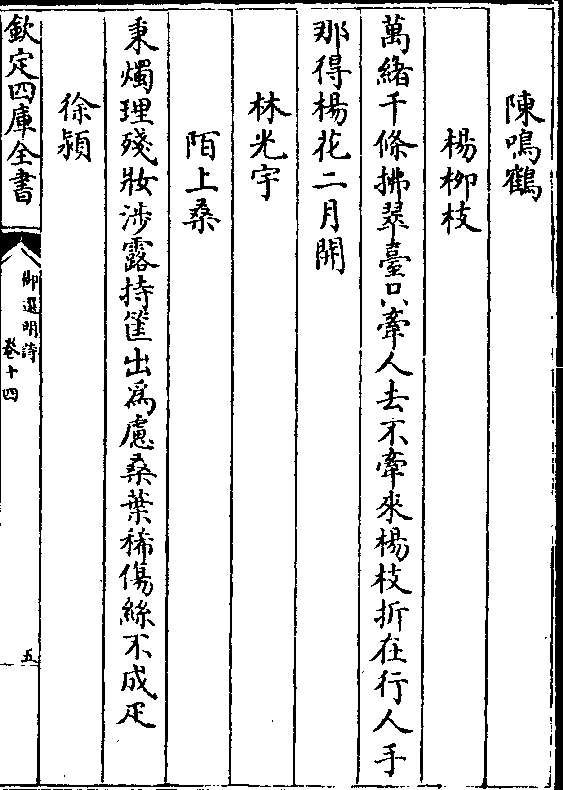 陳鳴鶴
楊柳枝
萬緒千條拂翠臺只牽人去不牽來楊枝折在行人手
那得楊花二月開
林光宇
陌上桑
秉燭理殘妝渉露持筐出為慮桑葉稀傷絲不成疋
徐熥
欽定四庫全書
御選明詩
卷十四
五